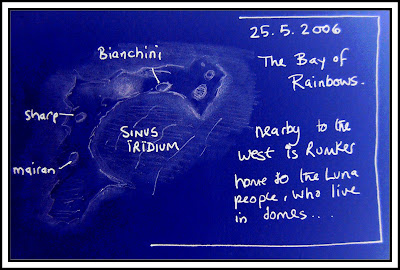 25.5.2006
The Bay of
Rainbows.
Bianchini
Sharp
SINUS
IRIDIUM
mairan
nearby to the
west is Rumker
home to the Luna
people, who live
in domes...